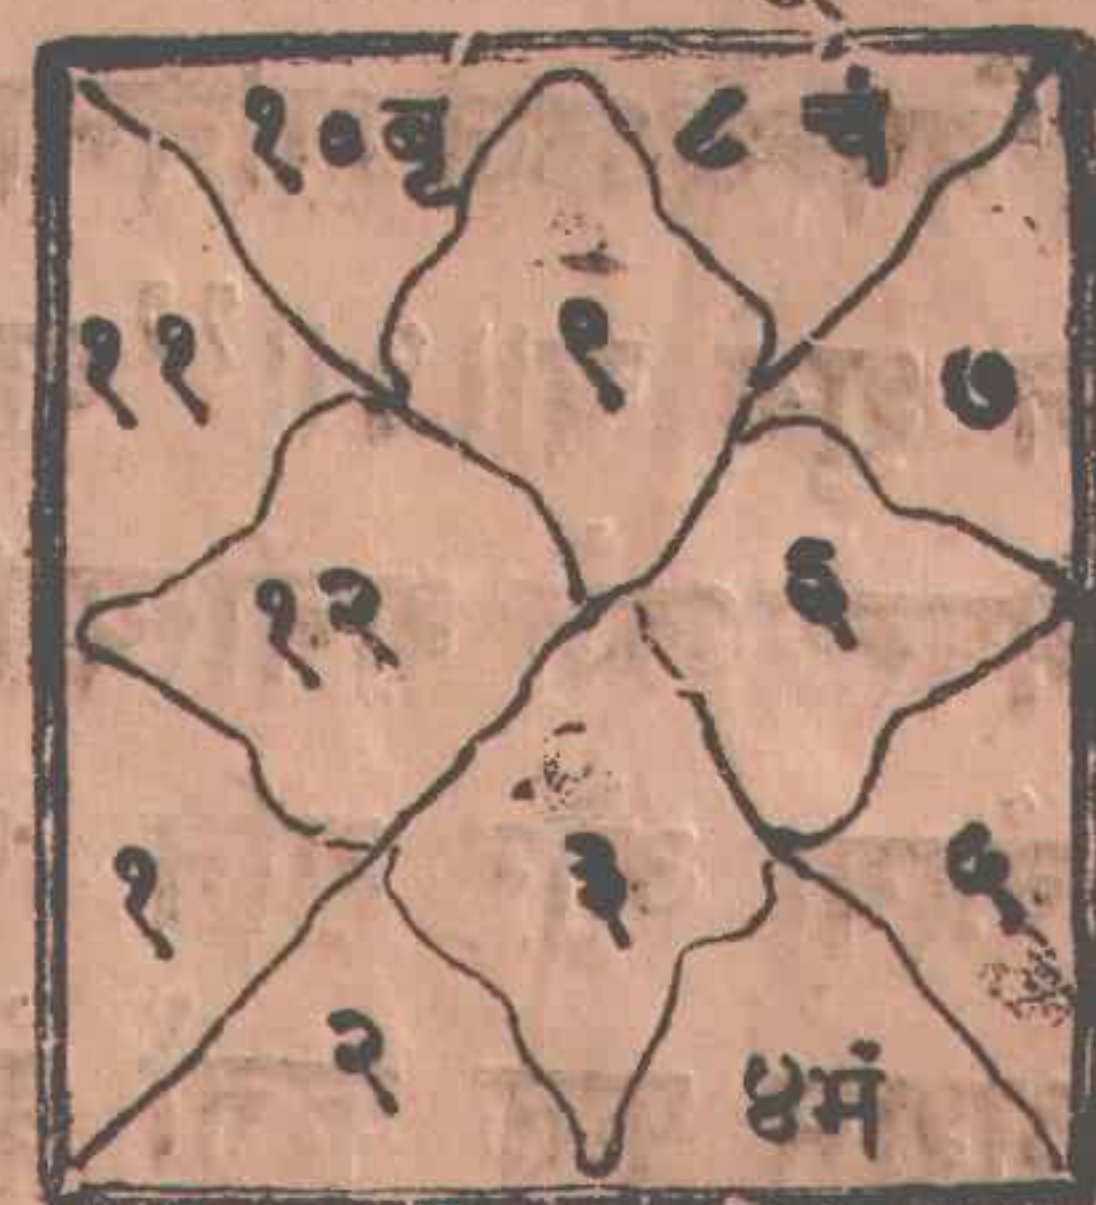 १०बृ ८ चं
९
११ ७
१२ ६
१ ३ ५
२ ४मं